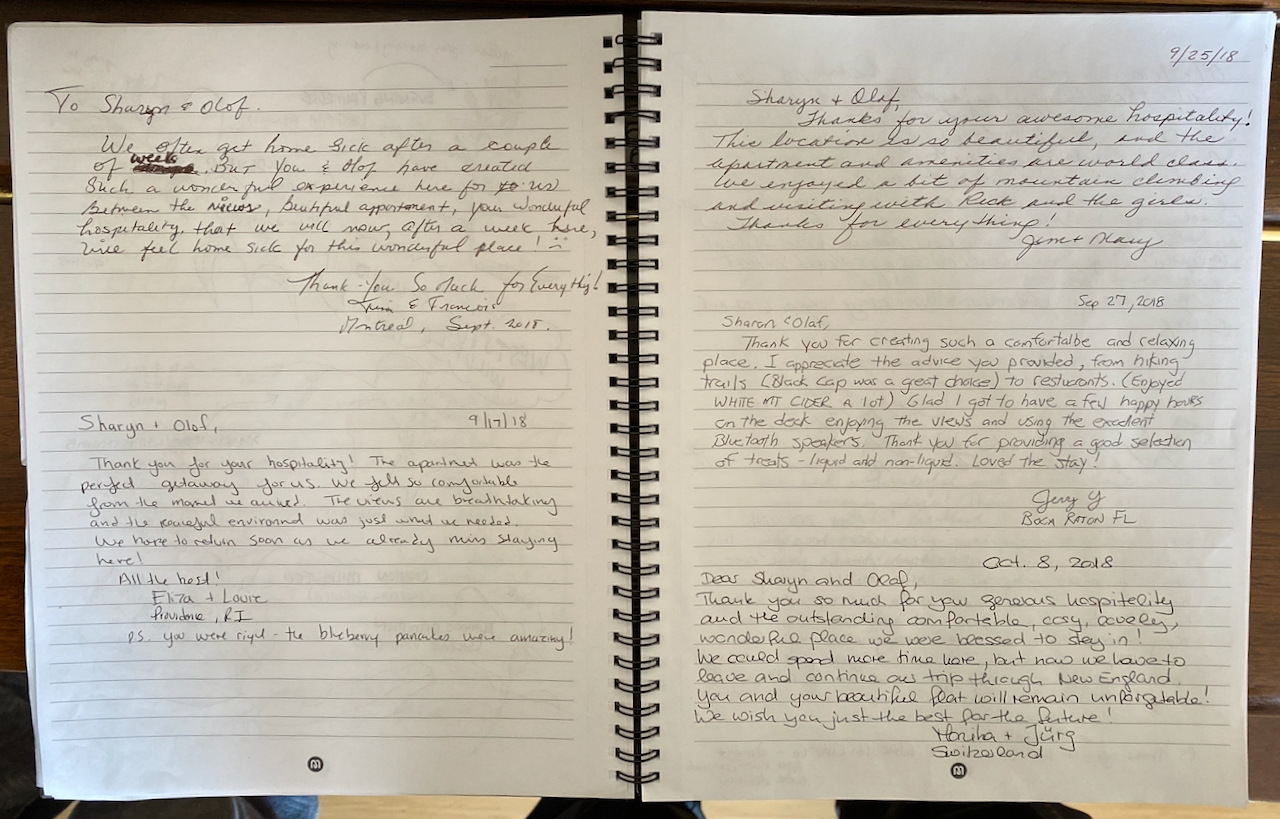 To Sharyn & Olof.
We often get home sick after a couple
of week. But You & Olof have created
Such a wonderful experience here for us
Between the views, beutiful appartment, your wonderful
hospitality, that we will now, after a week here,
feel home sick for this wonderful place!
Thank-You So Much for Everything!
& Francois
Montreal, Sept. 2018.
Sharyn + Olof,
9/17/18
Thank you for your hospitality! The apartment was the
perfect getaway for us. We felt so comfortable
from the moment we arrived. The views are breathtaking
and the peaceful environment was just what we needed.
We hope to return soon as we already miss staying
here!
All the best!
Eliza + Louie
Providence, RI
P.S. you were right - the blueberry pancakes were amazing!
9/25/18
Sharyn + Olaf,
Thanks for your awesome hospitality!
This location is so beautiful, and the
apartment and amenities are world class.
We enjoyed a bit of mountain climbing
and visiting with Rick and the girls.
Thanks for everything!
Jim + Mary
Sep 27, 2018
Sharon & Olaf,
Thank you for creating such a comfortalbe and relaxing
place. I appreciate the advice you provided, from hiking
trails (Black Cap was a great choice) to restuaronts. (Enjoyed
WHITE MT CIDER A lot) Glad I got to have a few happy hours
on the deck enjoying the views and using the excellent
Bluetooth speakers. Thank you for providing a good selection
of treats - liquid and non-liquid. Loved the stay!
Jerry Y
BOCA RATON FL
Oct. 8, 2018
Dear Sharyn and Olaf,
Thank you so much for your generous hospitelity
and the outstanding comfortable, cosy, lovely,
wonderful place we were blessed to stay in!
We could spend more time here, but now we have to
leave and continue our trip through New England.
You and your beautiful flat will remain unforgetable!
We wish you just the best for the future!
Monika + Jürg
Switzerland